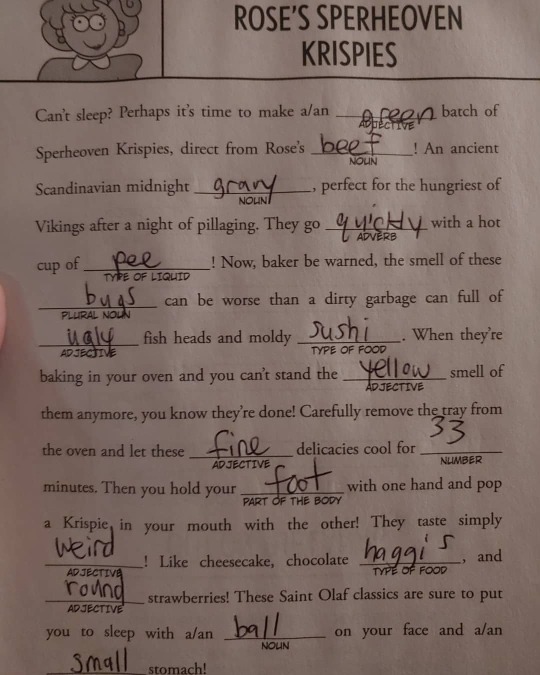 ROSE'S SPERHEOVEN
KRISPIES
Can't sleep? Perhaps it's time to make a/an green batch of
ADJECTIVE
Sperheoven Krispies, direct from Rose's beef! An ancient
NOUN
Scandinavian midnight gravy, perfect for the hungriest of
NOUN
Vikings after a night of pillaging. They go quickly with a hot
ADVERB
cup of pee! Now, baker be warned, the smell of these
TYPE OF LIQUID
bugs can be worse than a dirty garbage can full of
PLURAL NOUN
ugly fish heads and moldy sushi. When they're
ADJECTIVE TYPE OF FOOD
baking in your oven and you can't stand the yellow smell of
ADJECTIVE
them anymore, you know they're done! Carefully remove the tray from
the oven and let these fine delicacies cool for 33
ADJECTIVE NUMBER
minutes. Then you hold your foot with one hand and pop
PART OF THE BODY
a Krispie in your mouth with the other! They taste simply
weird! Like cheesecake, chocolate haggis, and
ADJECTIVE TYPE OF FOOD
round strawberries! These Saint Olaf classics are sure to put
ADJECTIVE
you to sleep with a/an ball on your face and a/an
NOUN
small stomach!